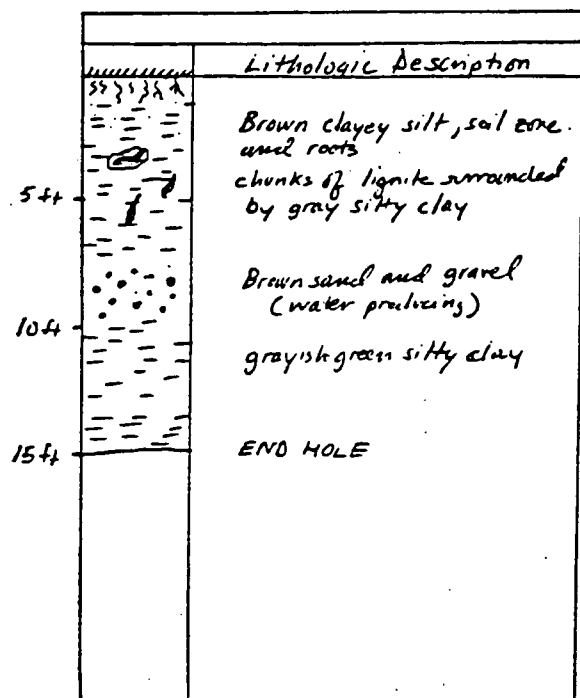 Lithologic Description
Brown clayey silt, soil zone
and roots
chunks of lignite surrounded
5 ft
by gray silty clay
Brown sand and gravel
(water producing)
10 ft
grayish green silty clay
15 ft
END HOLE